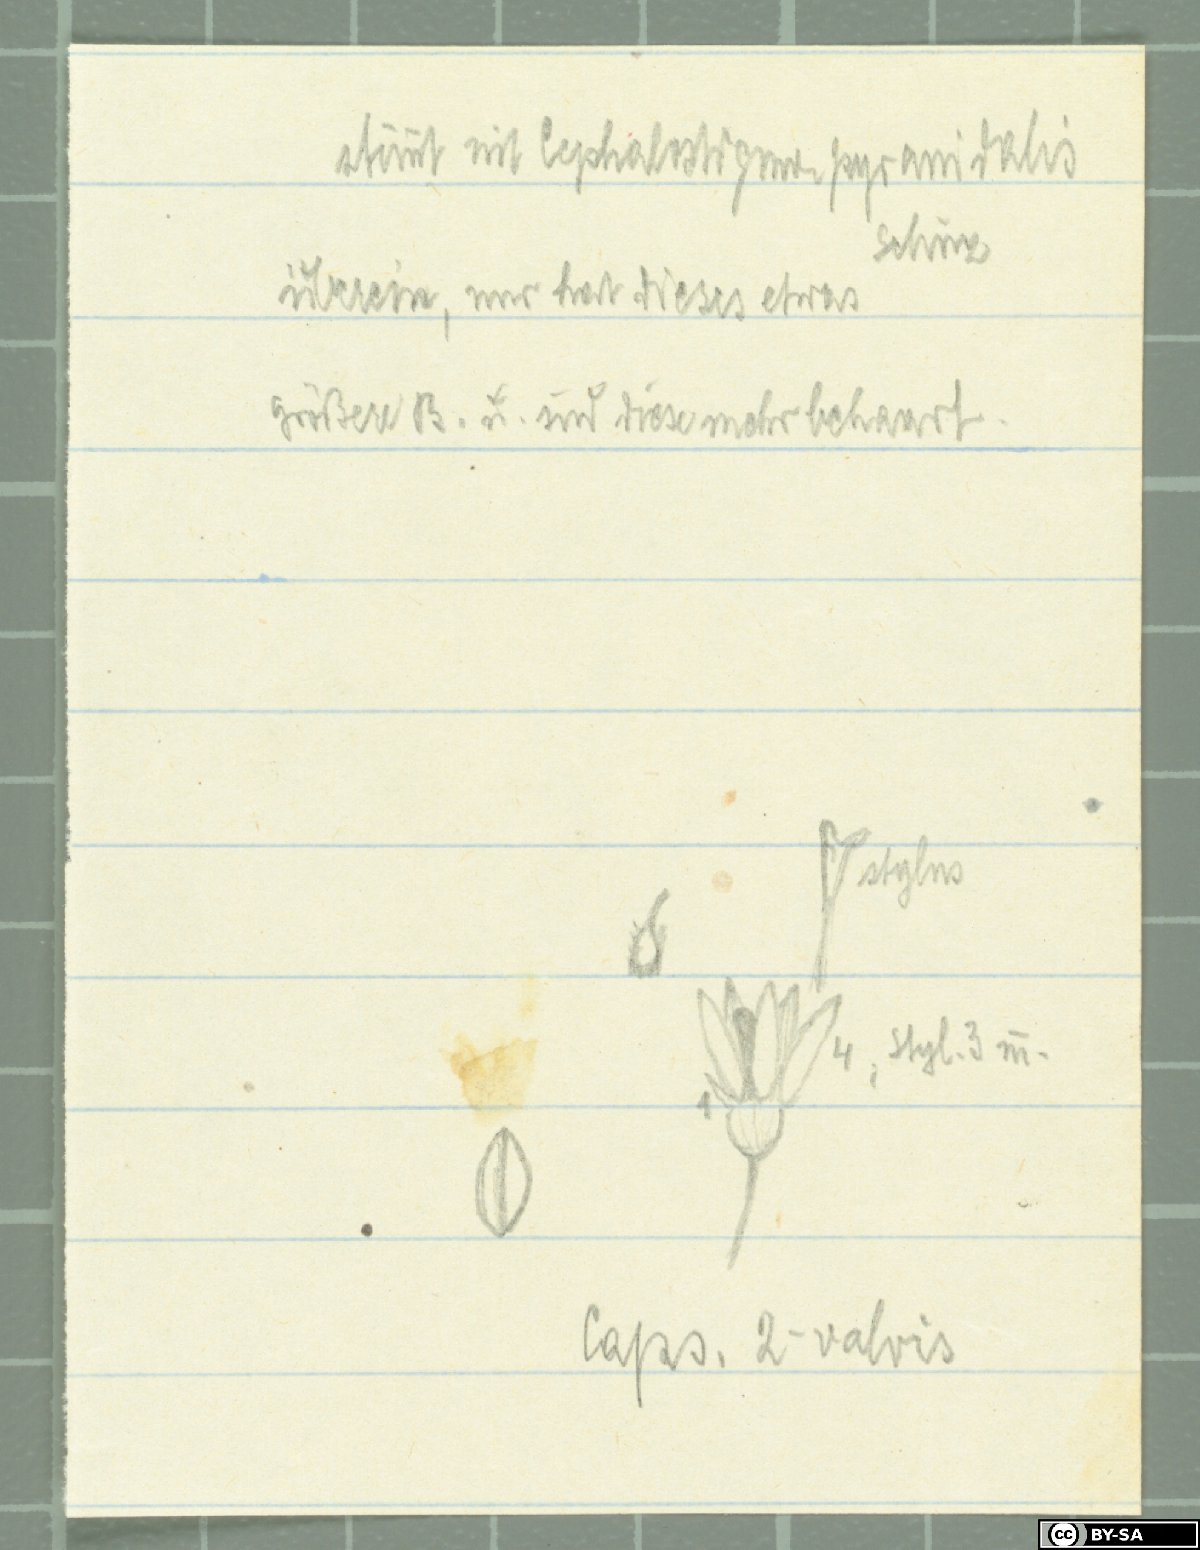 stimt mit Cephalostigma pyramidalis
Schinz
überein, nur hat dieses etwas
größere B. u. sind diese mehr behaart.
stylus
4, Styl. 3 m̄.
1
Caps. 2-valvis
BY-SA